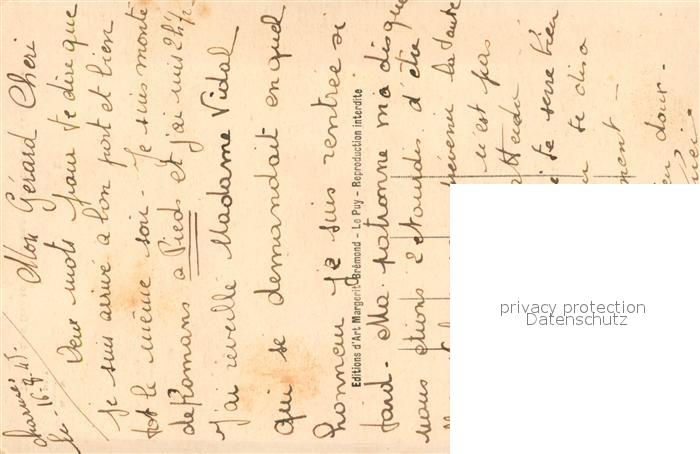 Charmes
le 16.8.45.
Mon Gérard Chéri
Deux mots pour te dire que
je suis arrivé à bon port et bien
tot le même soir - Je suis monté
de Romans à Pieds et j'ai mis 2h½ -
J'ai réveillé Madame Vidal
qui se demandait en quel
honneur je suis rentrée si
tard - Ma patronne m'a dis que
nous étions 2 étourdis d'etu
prévenu la tante
n'est pas
Attendu
te serre bien
te dira
ment -
doux -
Editions d'Art Margerit-Brémond - Le Puy - Reproduction interdite
privacy protection
Datenschutz